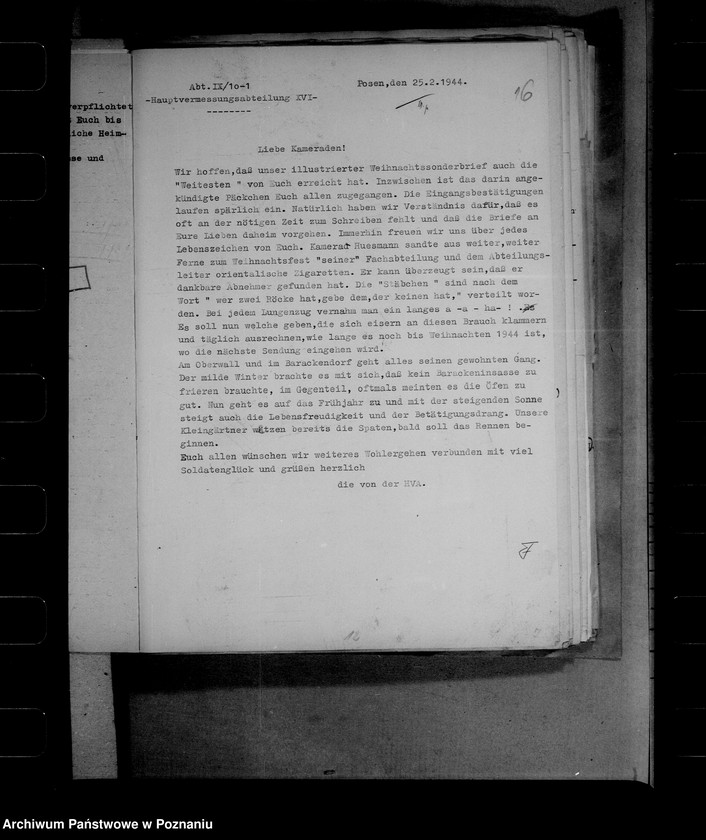 verpflichtet
Euch bis
iche Heim-
se und
Abt.IX/1o-1
Posen,den 25.2.1944.
-Hauptvermessungsabteilung XVI-
--------
16
Liebe Kameraden!
Wir hoffen,daß unser illustrierter Weihnachtssonderbrief auch die
"Weitesten " von Euch erreicht hat. Inzwischen ist das darin ange-
kündigte Päckchen Euch allen zugegangen. Die Eingangsbestätigungen
laufen spärlich ein. Natürlich haben wir Verständnis dafür,daß es
oft an der nötigen Zeit zum Schreiben fehlt und daß die Briefe an
Eure Lieben daheim vorgehen. Immerhin freuen wir uns über jedes
Lebenszeichen von Euch. Kamerad Huesmann sandte aus weiter,weiter
Ferne zum Weihnachtsfest "seiner" Fachabteilung und dem Abteilungs-
leiter orientalische Zigaretten. Er kann überzeugt sein,daß er
dankbare Abnehmer gefunden hat. Die "Stäbchen " sind nach dem
Wort " wer zwei Röcke hat,gebe dem,der keinen hat," verteilt wor-
den. Bei jedem Lungenzug vernahm man ein langes a -a - ha- ! .
Es soll nun welche geben,die sich eisern an diesen Brauch klammern
und täglich ausrechnen,wie lange es noch bis Weihnachten 1944 ist,
wo die nächste Sendung eingehen wird.
Am Oberwall und im Barackendorf geht alles seinen gewohnten Gang.
Der milde Winter brachte es mit sich,daß kein Barackeninsasse zu
frieren brauchte, im Gegenteil, oftmals meinten es die Öfen zu
gut. Nun geht es auf das Frühjahr zu und mit der steigenden Sonne
steigt auch die Lebensfreudigkeit und der Betätigungsdrang. Unsere
Kleingärtner wetzen bereits die Spaten,bald soll das Rennen be-
ginnen.
Euch allen wünschen wir weiteres Wohlergehen verbunden mit viel
Soldatenglück und grüßen herzlich
die von der HVA.
Archiwum Państwowe w Poznaniu